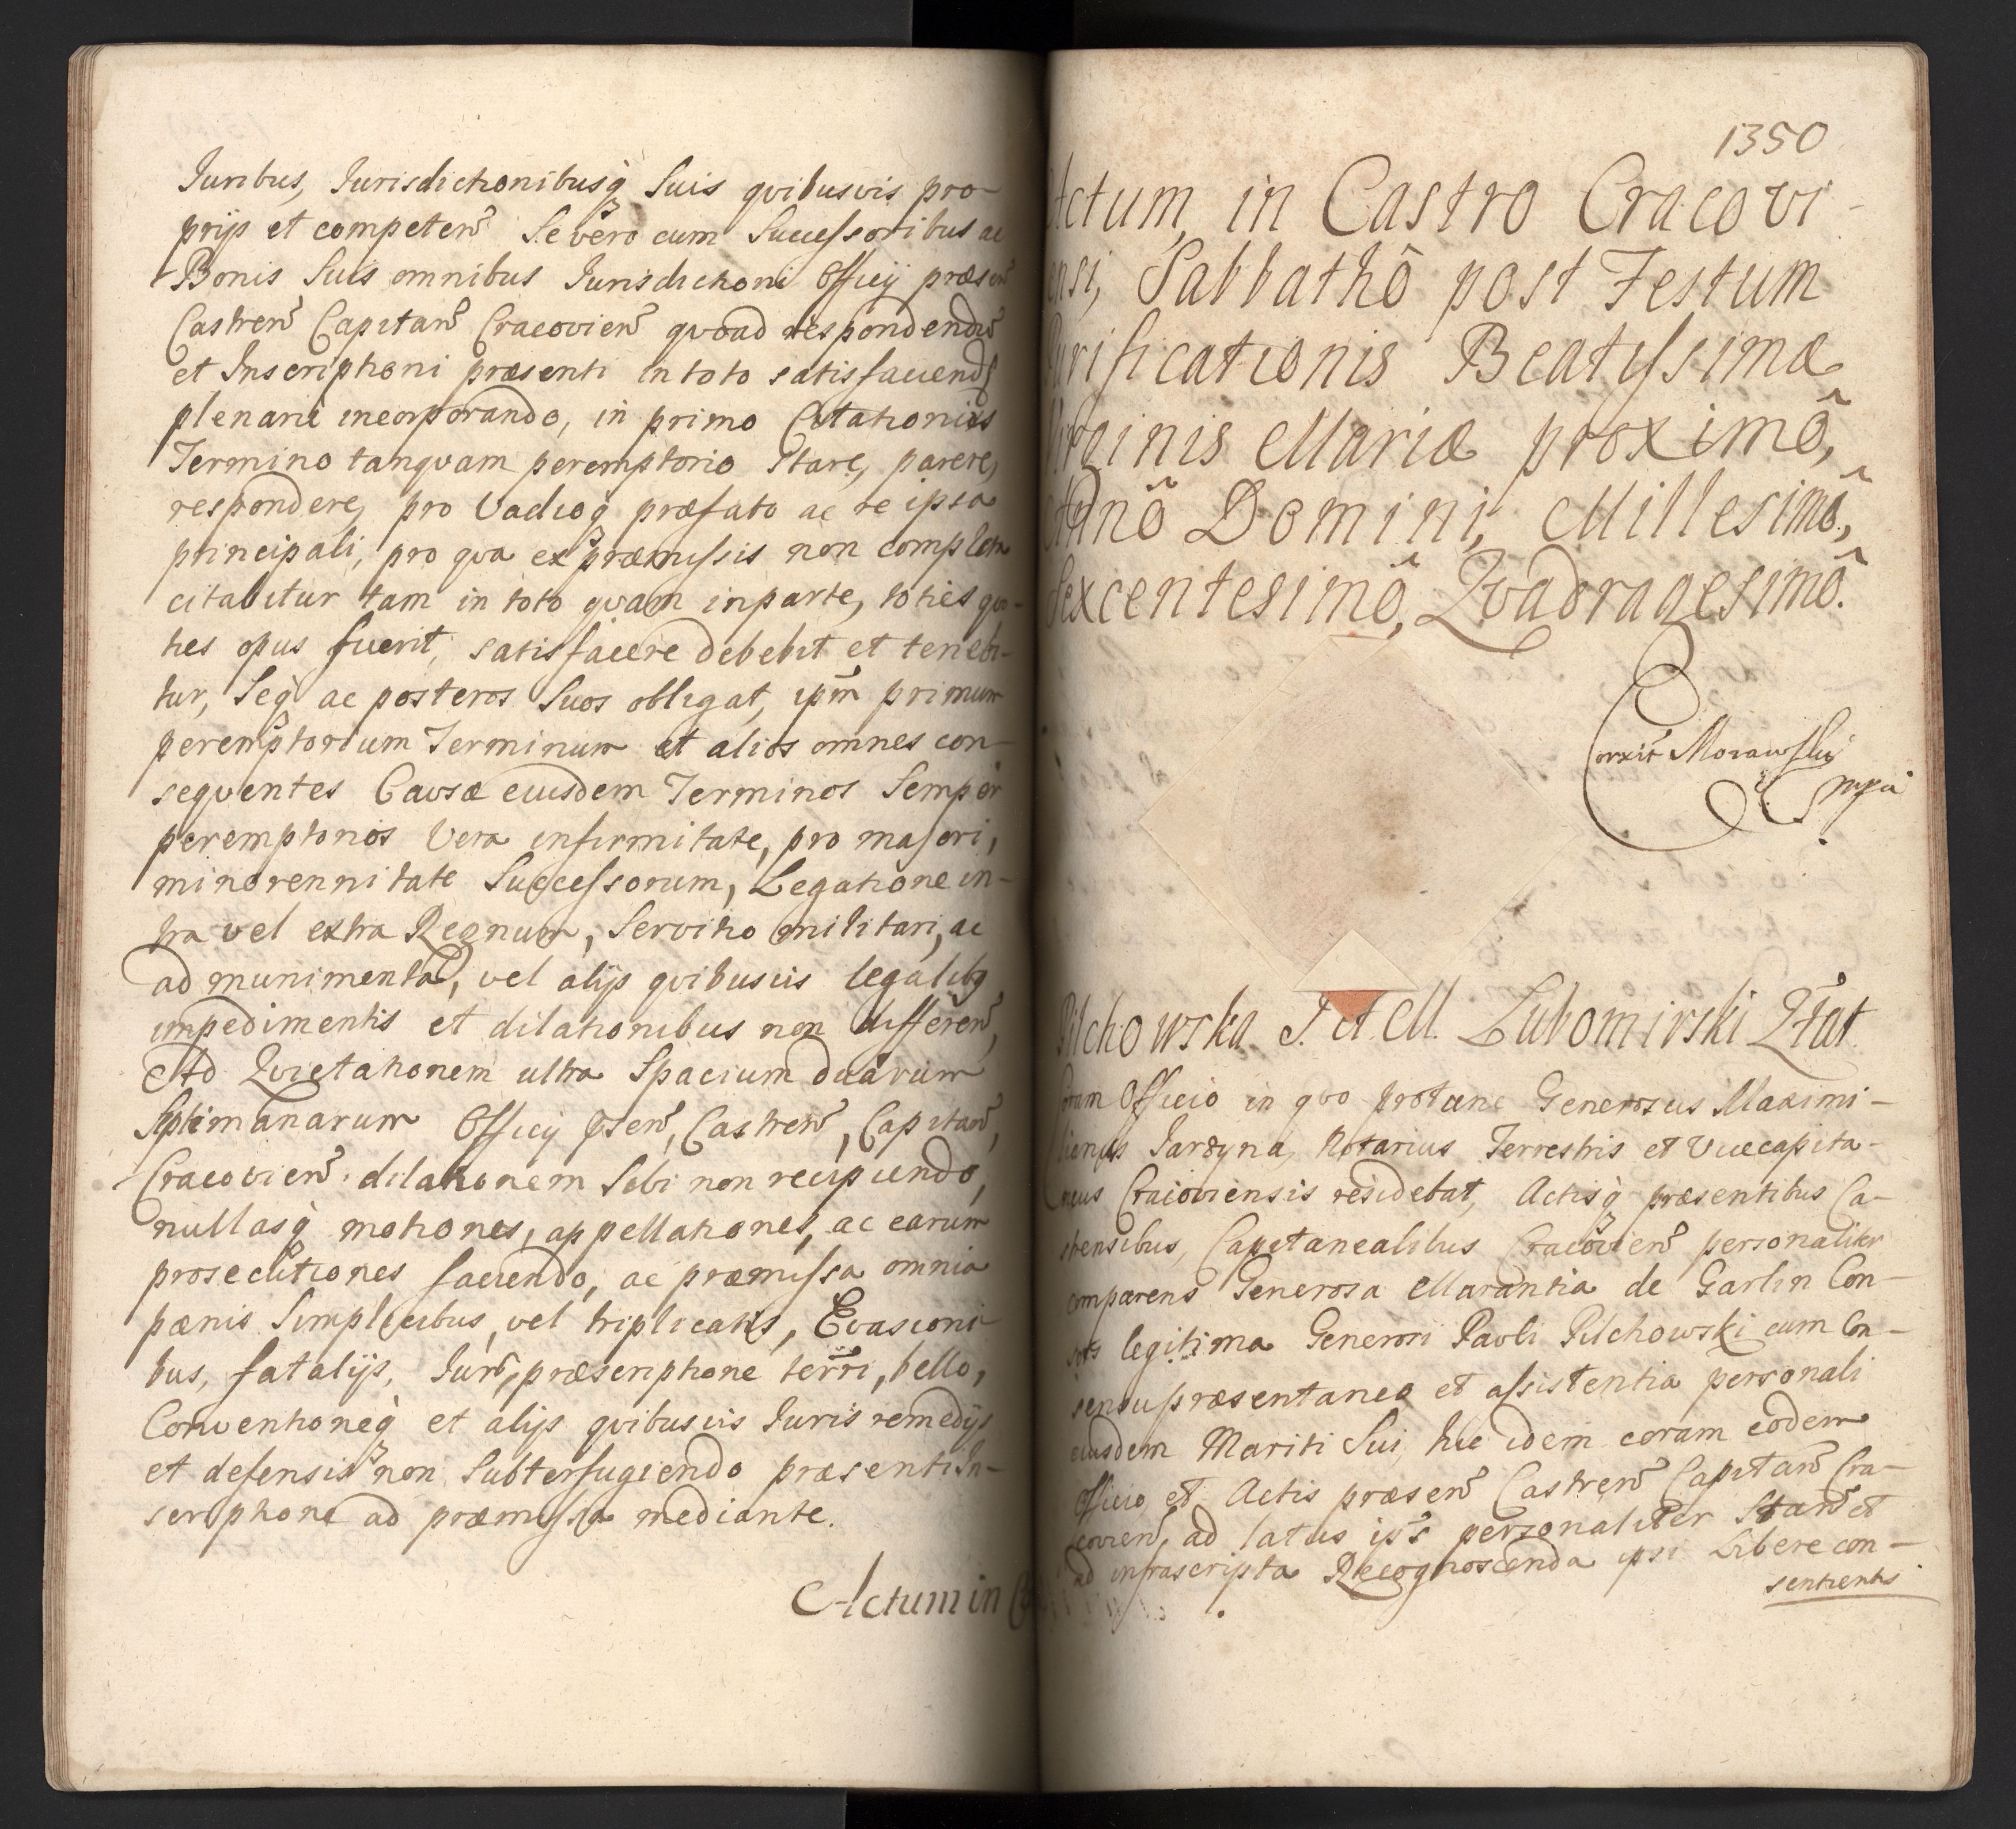 Juribus, Jurisdictionibusq́ Suis qvibusvis pro-
prijs et competen̄ Se vero cum Successoribus ac
Bonis Suis omnibus Jurisdictioni Officij præsen̄
Castren̄ Capitan̄ Cracovien̄ qvoad respondendū
et Inscriptioni præsenti in toto satisfaciend
plenarie incorporando, in primo Citationis
Termino tanqvam peremptorio Stare, parere,
respondere, pro Vadioq́ præfato ac re ipsa
principali, pro qva ex præmissis non completa
citabitur tam in toto qvam in parte, toties qvo-
ties opus fuerit, satisfacere debebit et tenebi-
tur, Seq́ ac posteros Suos obligat, ipm̄ primum
peremptorium Terminum et alios omnes con-
seqventes Causæ eiusdem Terminos Semper
peremptorios Vera infirmitate, pro majori,
minorennitate Successorum, Legatione in-
tra vel extra Regnum, Servitio militari, ac
ad munimenta, vel alijs qvibusvis legalibq
impedimentis et dilationibus non differen̄,
Ad Qvietationem ultra Spacium duarum
Septimanarum Officij p̄sen̄, Castren̄, Capitan̄,
Cracovien̄ dilationem Sibi non recipiendo,
nullasq́ motiones, appellationes, ac earum
prosecutiones faciendo, ac præmissa omnia
pænis Simplicibus, vel triplicatis, Evasioni-
bus, fatalijs, Jurō, præscriptione ter̄ri, bello,
Conventioneq́ et alijs qvibusvis Juris remedijs
et defensis non Subterfugiendo præsenti In-
scriptione ad præmissa mediante.
Actum in C
1350
Actum in Castro Cracovi-
ensi, Sabbathô post Festum
Purificationis Beatissimæ
Virginis Mariæ proximô,
Annô Domini, Millesimô,
Sexcentesimô, Qvadragesimô.
Corrxit Morawsky
mpa
Pilchowska J. et M. Lubomirski Qtat.
Coram Officio in qvo protunc Generosus Maximi-
lianus Jardyna, Notarius Terrestris et Vicecapita-
neus Cracoviensis residebat, Actisq́ præsentibus Ca-
strensibus, Capitanealibus Cracovien̄ personaliter
comparens Generosa Marantia de Garlin Con-
sors legitima Generosi Pavli Pilchowski cum Con-
sensu præsentaneo et assistentia personali
eiusdem Mariti Sui, hic idem coram eodem
Officio, et Actis præsen̄ Castren̄ Capitan̄ Cra-
covien̄, ad latus ip̄s personaliter Stan̄ et
ad infrascripta Recognoscenda ipsi Libere con-
sentientis